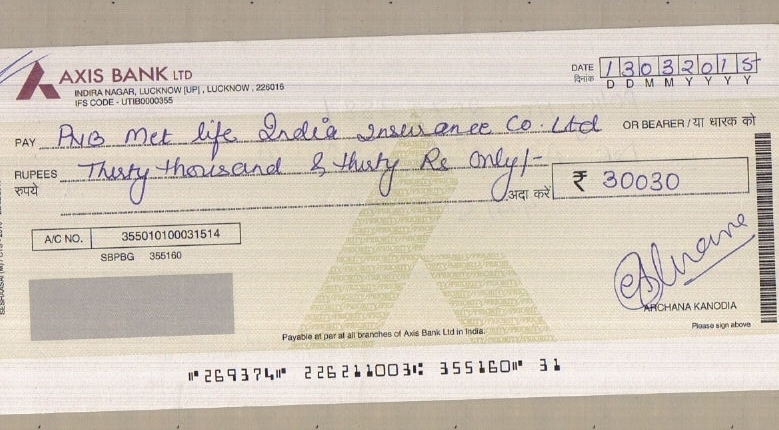 AXIS BANK LTD
INDIRA NAGAR, LUCKNOW [UP], LUCKNOW, 226016
IFS CODE - UTIB0000355
DATE 13032015
दिनांक D D M M Y Y Y Y
PAY PNB Met life India Insurance Co. Ltd OR BEARER / या धारक को
RUPEES Thirty thousand & thirty Rs only/-
रुपये अदा करें ₹ 30030
A/C NO. 355010100031514
SBPBG 355160
ARCHANA KANODIA
Please sign above
Payable at par at all branches of Axis Bank Ltd in India.
⑈269374⑈ 226211003⑆ 355160⑈ 31